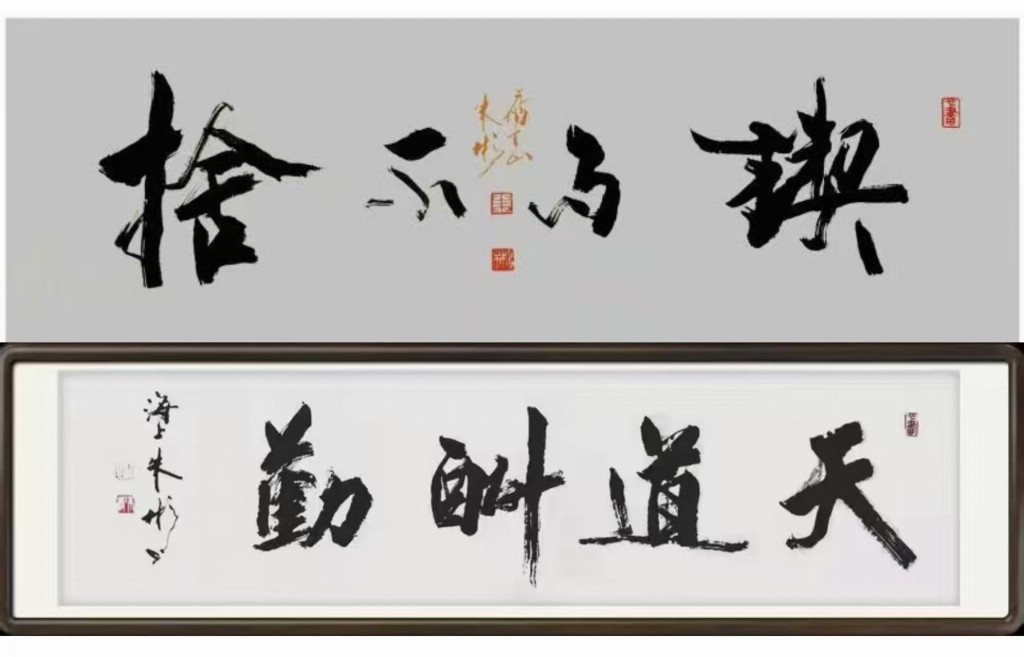 鍥而不捨
朱彬
天道酬勤
海上朱彬书